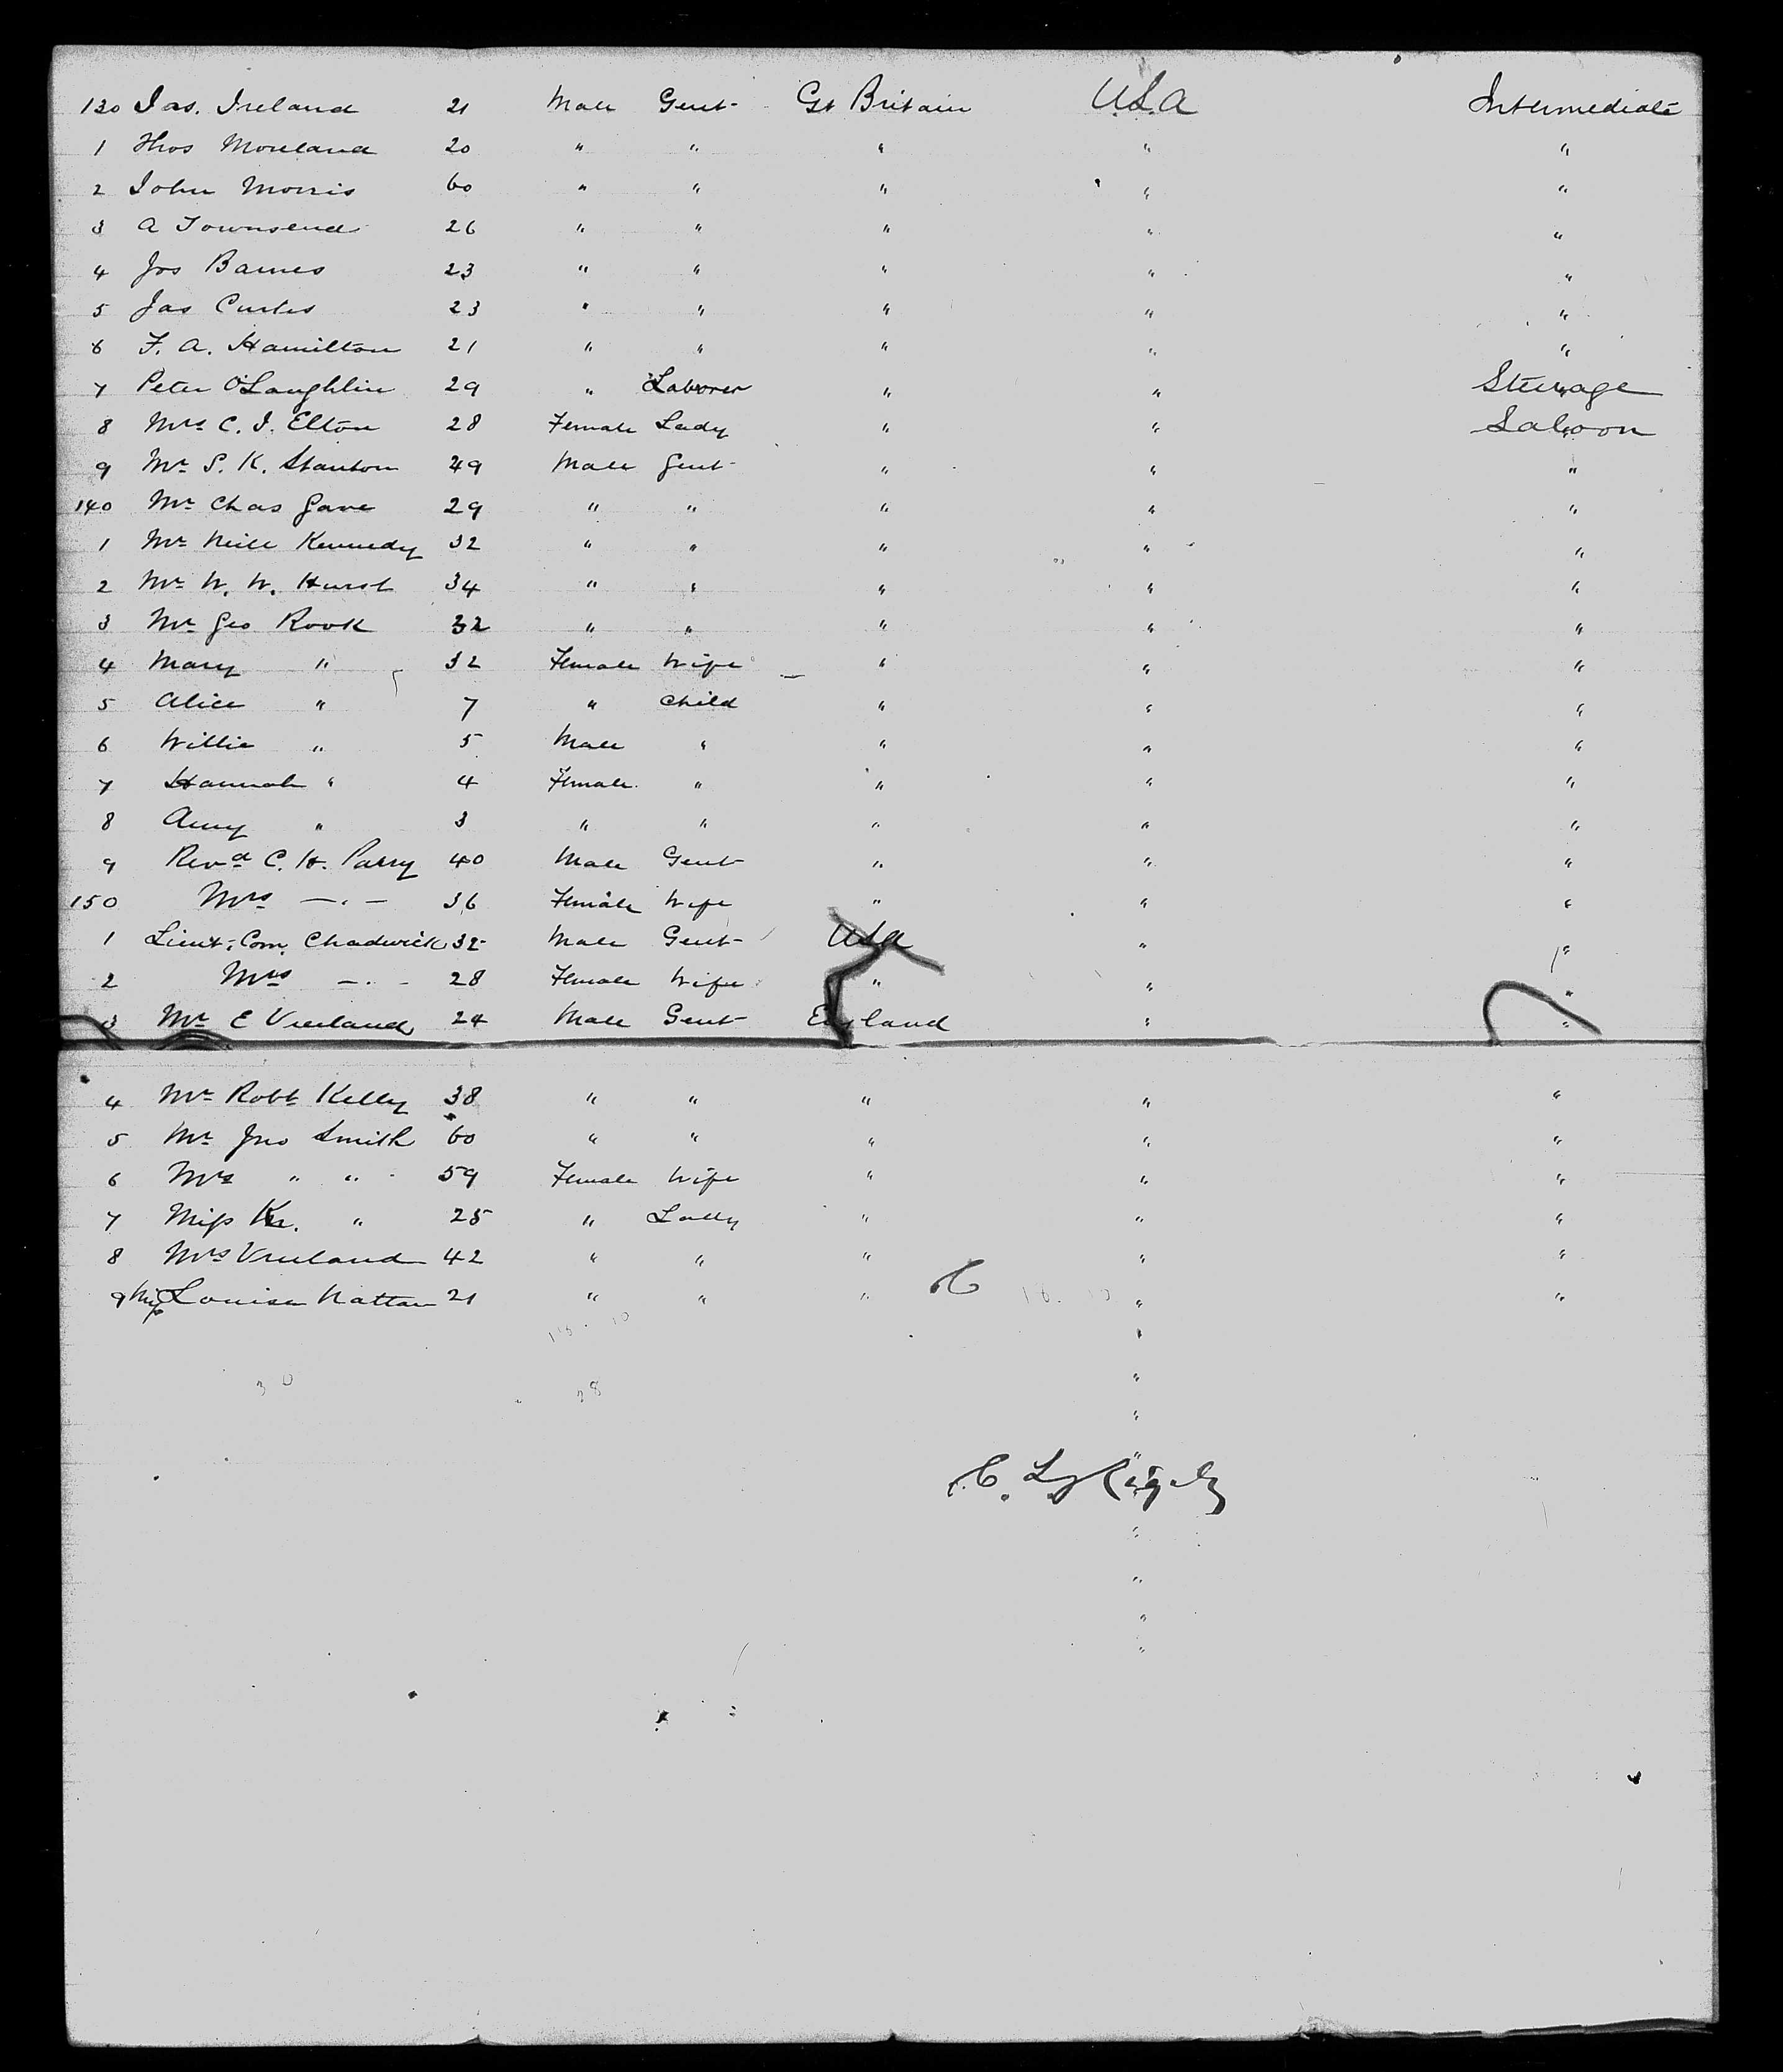 130 Jas. Ireland 21 Male Gent- Gt Britain U.S.A Intermediate
1 Thos Moreland 20 " " " " "
2 John Morris 60 " " " " "
3 A Townsend 26 " " " " "
4 Jos Barnes 23 " " " " "
5 Jas Curtis 23 " " " " "
6 F. A. Hamilton 21 " " " " "
7 Peter O'Laughlin 29 " Laborer " " Steerage
8 Mrs C. J. Elton 28 Female Lady " " Saloon
9 Mr S. K. Stanton 49 Male Gent- " " "
140 Mr Chas Gave 29 " " " " "
1 Mr Neill Kennedy 32 " " " " "
2 Mr W. W. Hurst 34 " " " " "
3 Mr Geo Rook 32 " " " " "
4 Mary " 32 Female Wife " " "
5 Alice " 7 " Child " " "
6 Willie " 5 Male " " " "
7 Hannah " 4 Female " " " "
8 Amy " 3 " " " " "
9 Revd C. H. Parry 40 Male Gent- " " "
150 Mrs —.— 36 Female Wife " " "
1 Lieut: Com. Chadwick 32 Male Gent- USA " "
2 Mrs —.— 28 Female Wife " " "
3 Mr E Vreeland 24 Male Gent- England " "
4 Mr Robt Kelly 38 " " " " "
5 Mr Jno Smith 60 " " " " "
6 Mrs " " 59 Female Wife " " "
7 Miss " 25 " Lady " " "
8 Mrs Vreeland 42 " " " " "
9 Miss Louisa Nattan 21 " " " " "